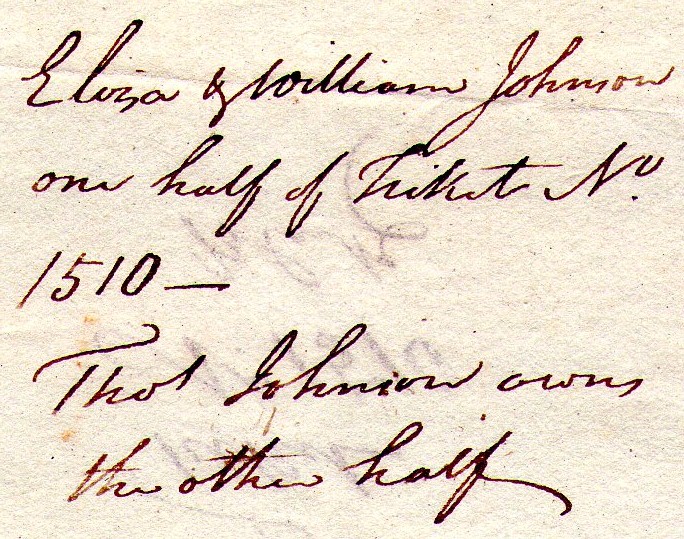 Eliza & William Johnson
one half of Tiket No.
1510 —
Thos Johnson owns
the other half